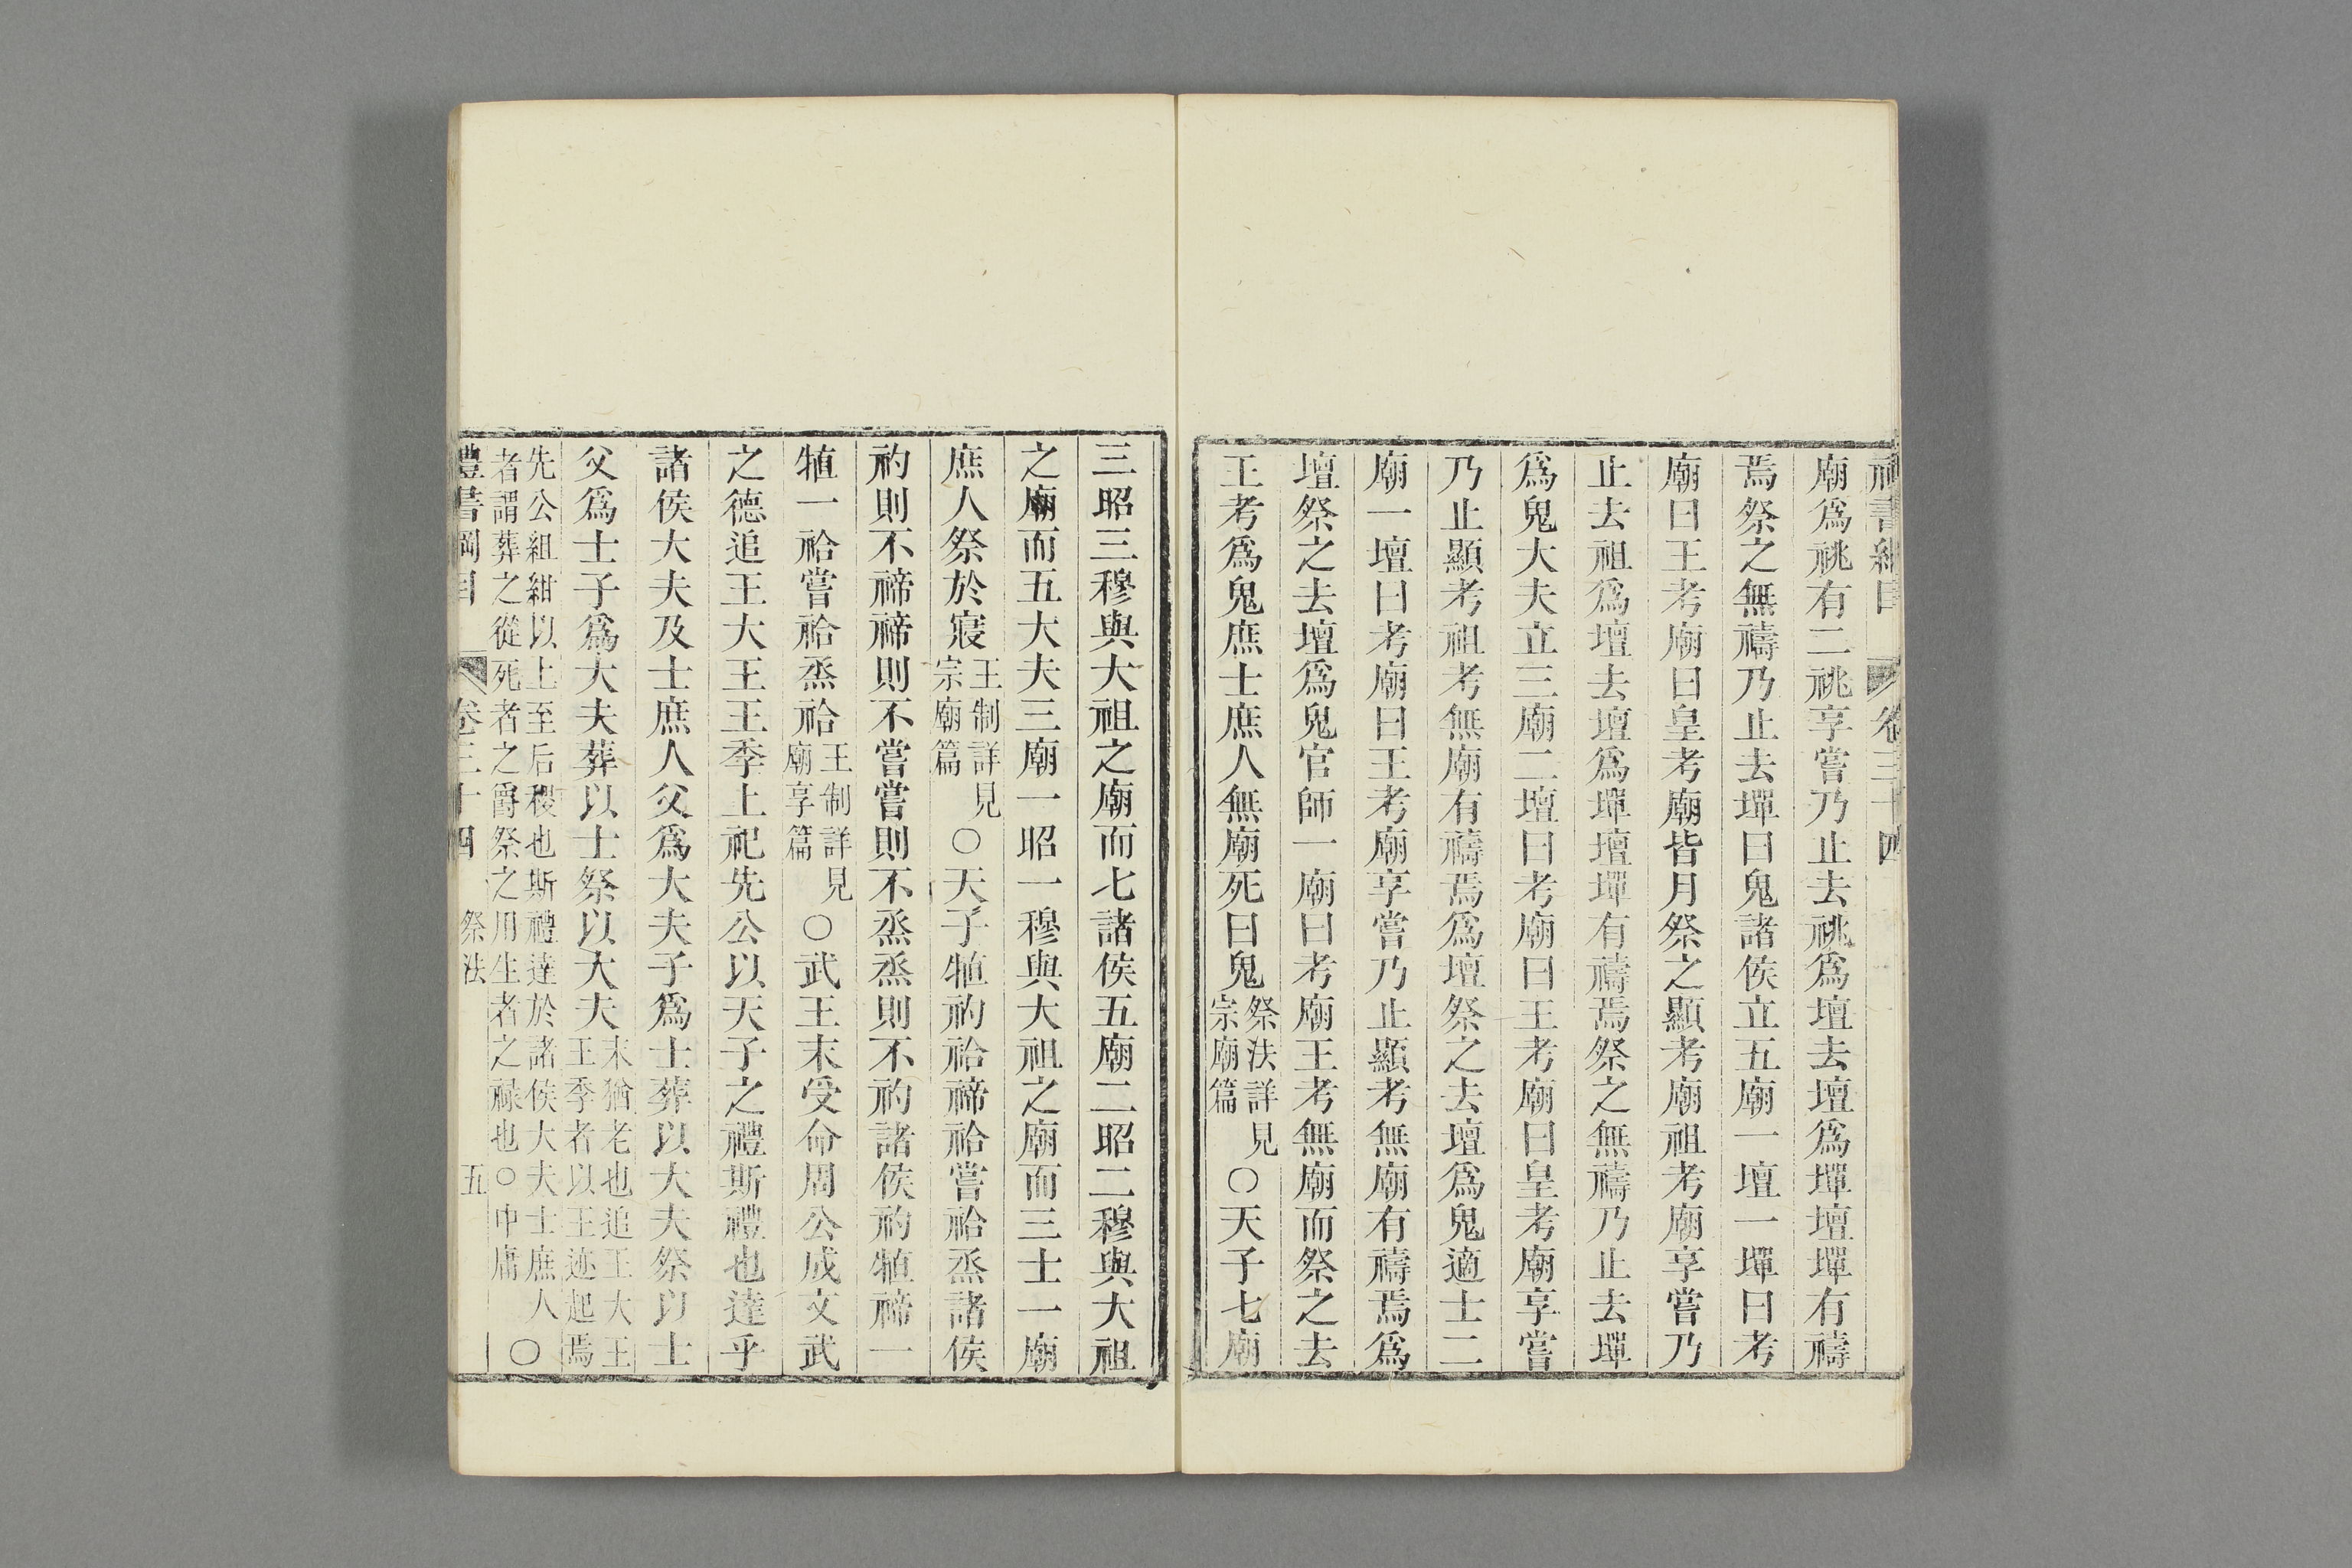 禮書綱目 卷三十四
廟爲祧有二祧享嘗乃止去祧爲壇去壇爲墠壇墠有禱
焉祭之無禱乃止去墠曰鬼諸侯立五廟一壇一墠曰考
廟曰王考廟曰皇考廟皆月祭之顯考廟祖考廟享嘗乃
止去祖爲壇去壇爲墠壇墠有禱焉祭之無禱乃止去墠
爲鬼大夫立三廟二壇曰考廟曰王考廟曰皇考廟享嘗
乃止顯考祖考無廟有禱焉爲壇祭之去壇爲鬼適士二
廟一壇曰考廟曰王考廟享嘗乃止顯考無廟有禱焉爲
壇祭之去壇爲鬼官師一廟曰考廟王考無廟而祭之去
王考爲鬼庶士庶人無廟死曰鬼祭法詳見宗廟篇○天子七廟
三昭三穆與大祖之廟而七諸侯五廟二昭二穆與大祖
之廟而五大夫三廟一昭一穆與大祖之廟而三士一廟
庶人祭於寢王制詳見宗廟篇○天子犆礿祫禘祫嘗祫烝諸侯
礿則不禘禘則不嘗嘗則不烝烝則不礿諸侯礿犆禘一
犆一祫嘗祫烝祫王制詳見廟享篇○武王末受命周公成文武
之德追王大王王季上祀先公以天子之禮斯禮也達乎
諸侯大夫及士庶人父爲大夫子爲士葬以大夫祭以士
父爲士子爲大夫葬以士祭以大夫末猶老也追王大王王季者以王迹起焉
先公組紺以上至后稷也斯禮達於諸侯大夫士庶人者謂葬之從死者之爵祭之用生者之祿也○中庸○
禮書綱目 卷三十四 祭法 五